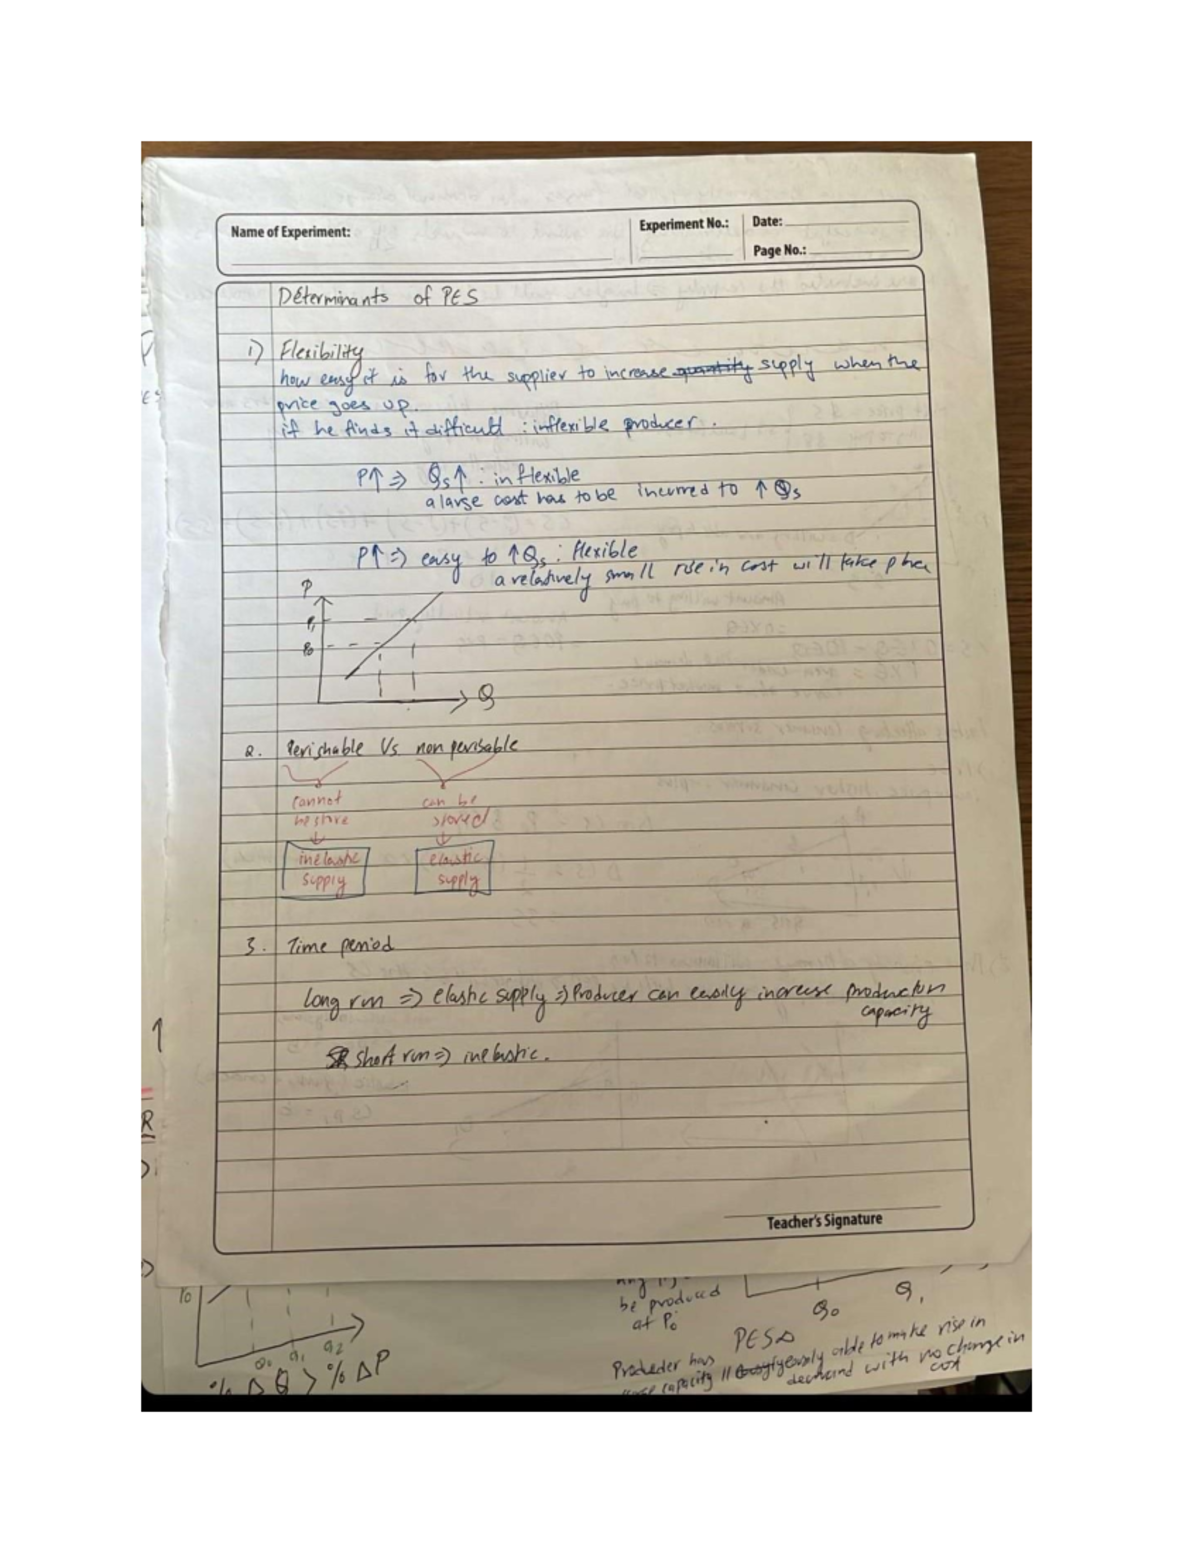 Name of Experiment:
Experiment No.:
Date:
Page No.:
Determinants of PES
1) Flexibility
how easy it is for the supplier to increase quantity supply when the
price goes up.
if he finds it difficult : inflexible producer.
P↑ ⇒ Qs↑ : inflexible
a large cost has to be incurred to ↑ Qs
P↑ ⇒ easy to ↑Qs : flexible
a relatively small rise in cost will take place
P
P₁
P₀
Q
2. Perishable Vs non perisable
cannot can be
be store stored
inelastic elastic
supply supply
3. Time period
long run ⇒ elastic supply ⇒ Producer can easily increase production
capacity
short run ⇒ inelastic.
Teacher's Signature
be produced
at P₀
Q₀ Q₁
P₀
Q₀ q₁ q₂
% Δ Q > % Δ P
PES
Producer has
capacity // easily able to make rise in
demand with no change in
cost